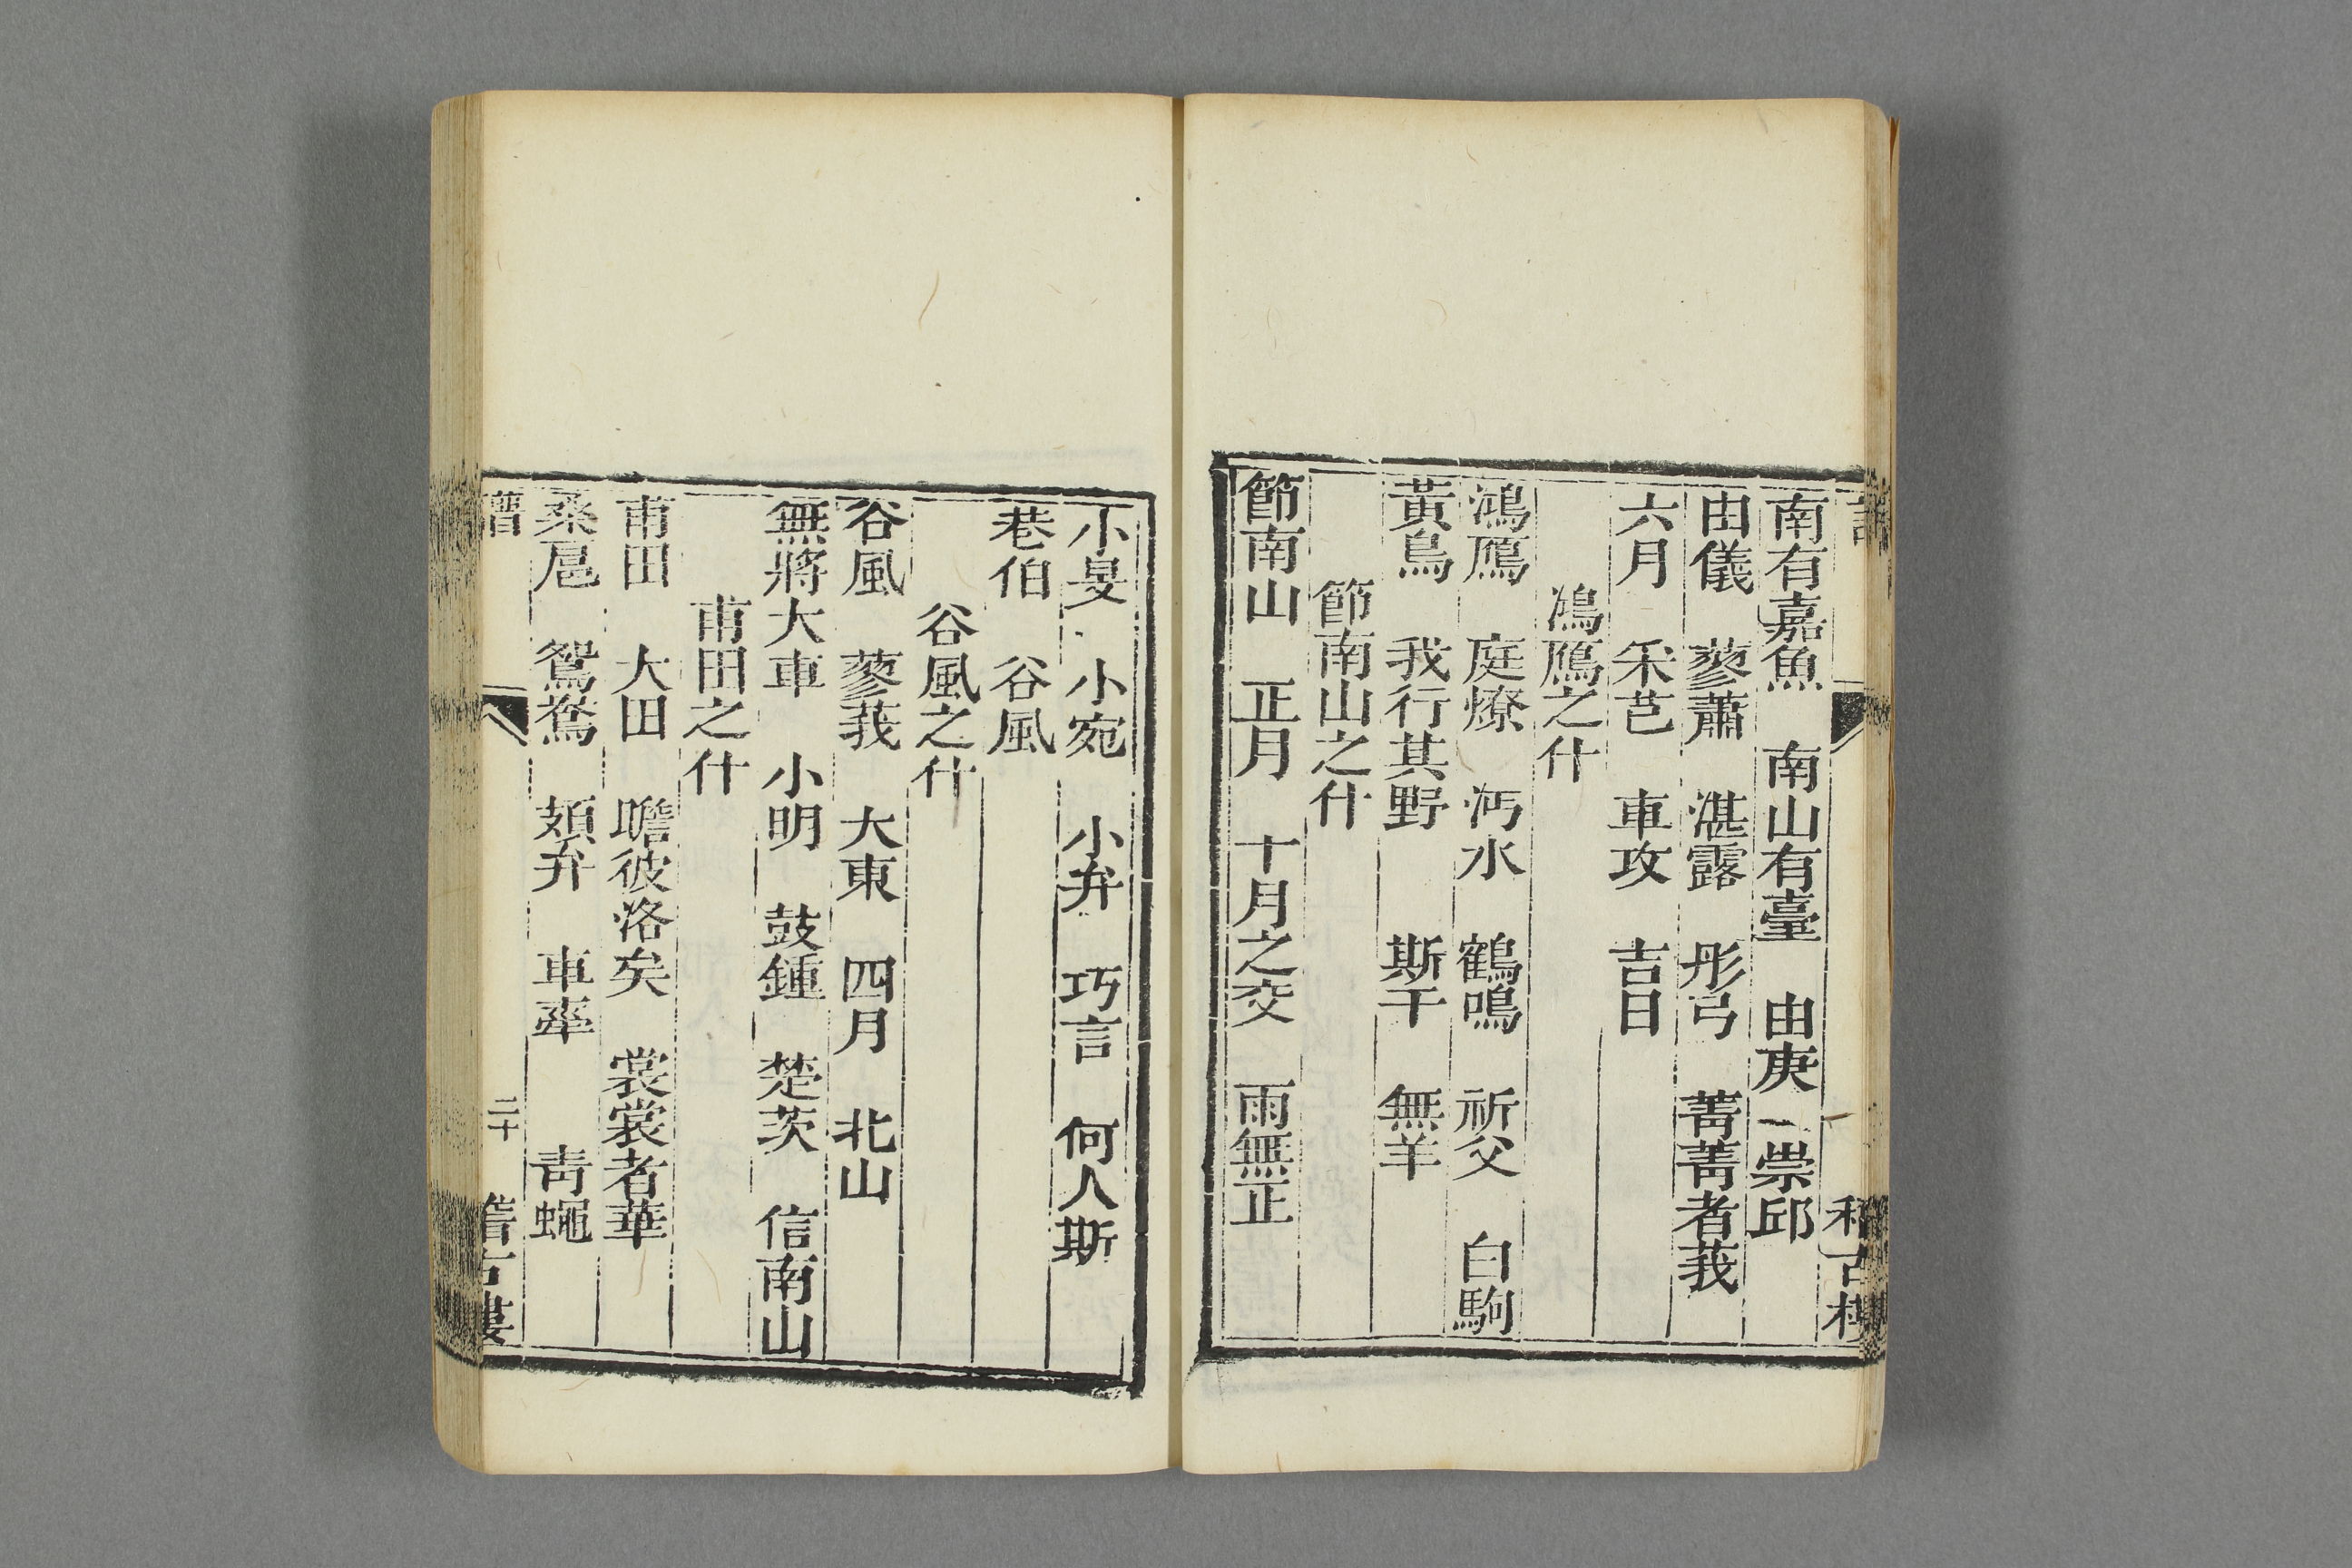 南有嘉魚　南山有臺　由庚　崇邱
由儀　蓼蕭　湛露　彤弓　菁菁者莪
六月　采芑　車攻　吉日
鴻鴈之什
鴻鴈　庭燎　沔水　鶴鳴　祈父　白駒
黃鳥　我行其野　斯干　無羊
節南山之什
節南山　正月　十月之交　雨無正
小旻　小宛　小弁　巧言　何人斯
巷伯　谷風
谷風之什
谷風　蓼莪　大東　四月　北山
無將大車　小明　鼓鍾　楚茨　信南山
甫田之什
甫田　大田　瞻彼洛矣　裳裳者華
桑扈　鴛鴦　頍弁　車舝　靑蠅
譜　二十　稽古樓